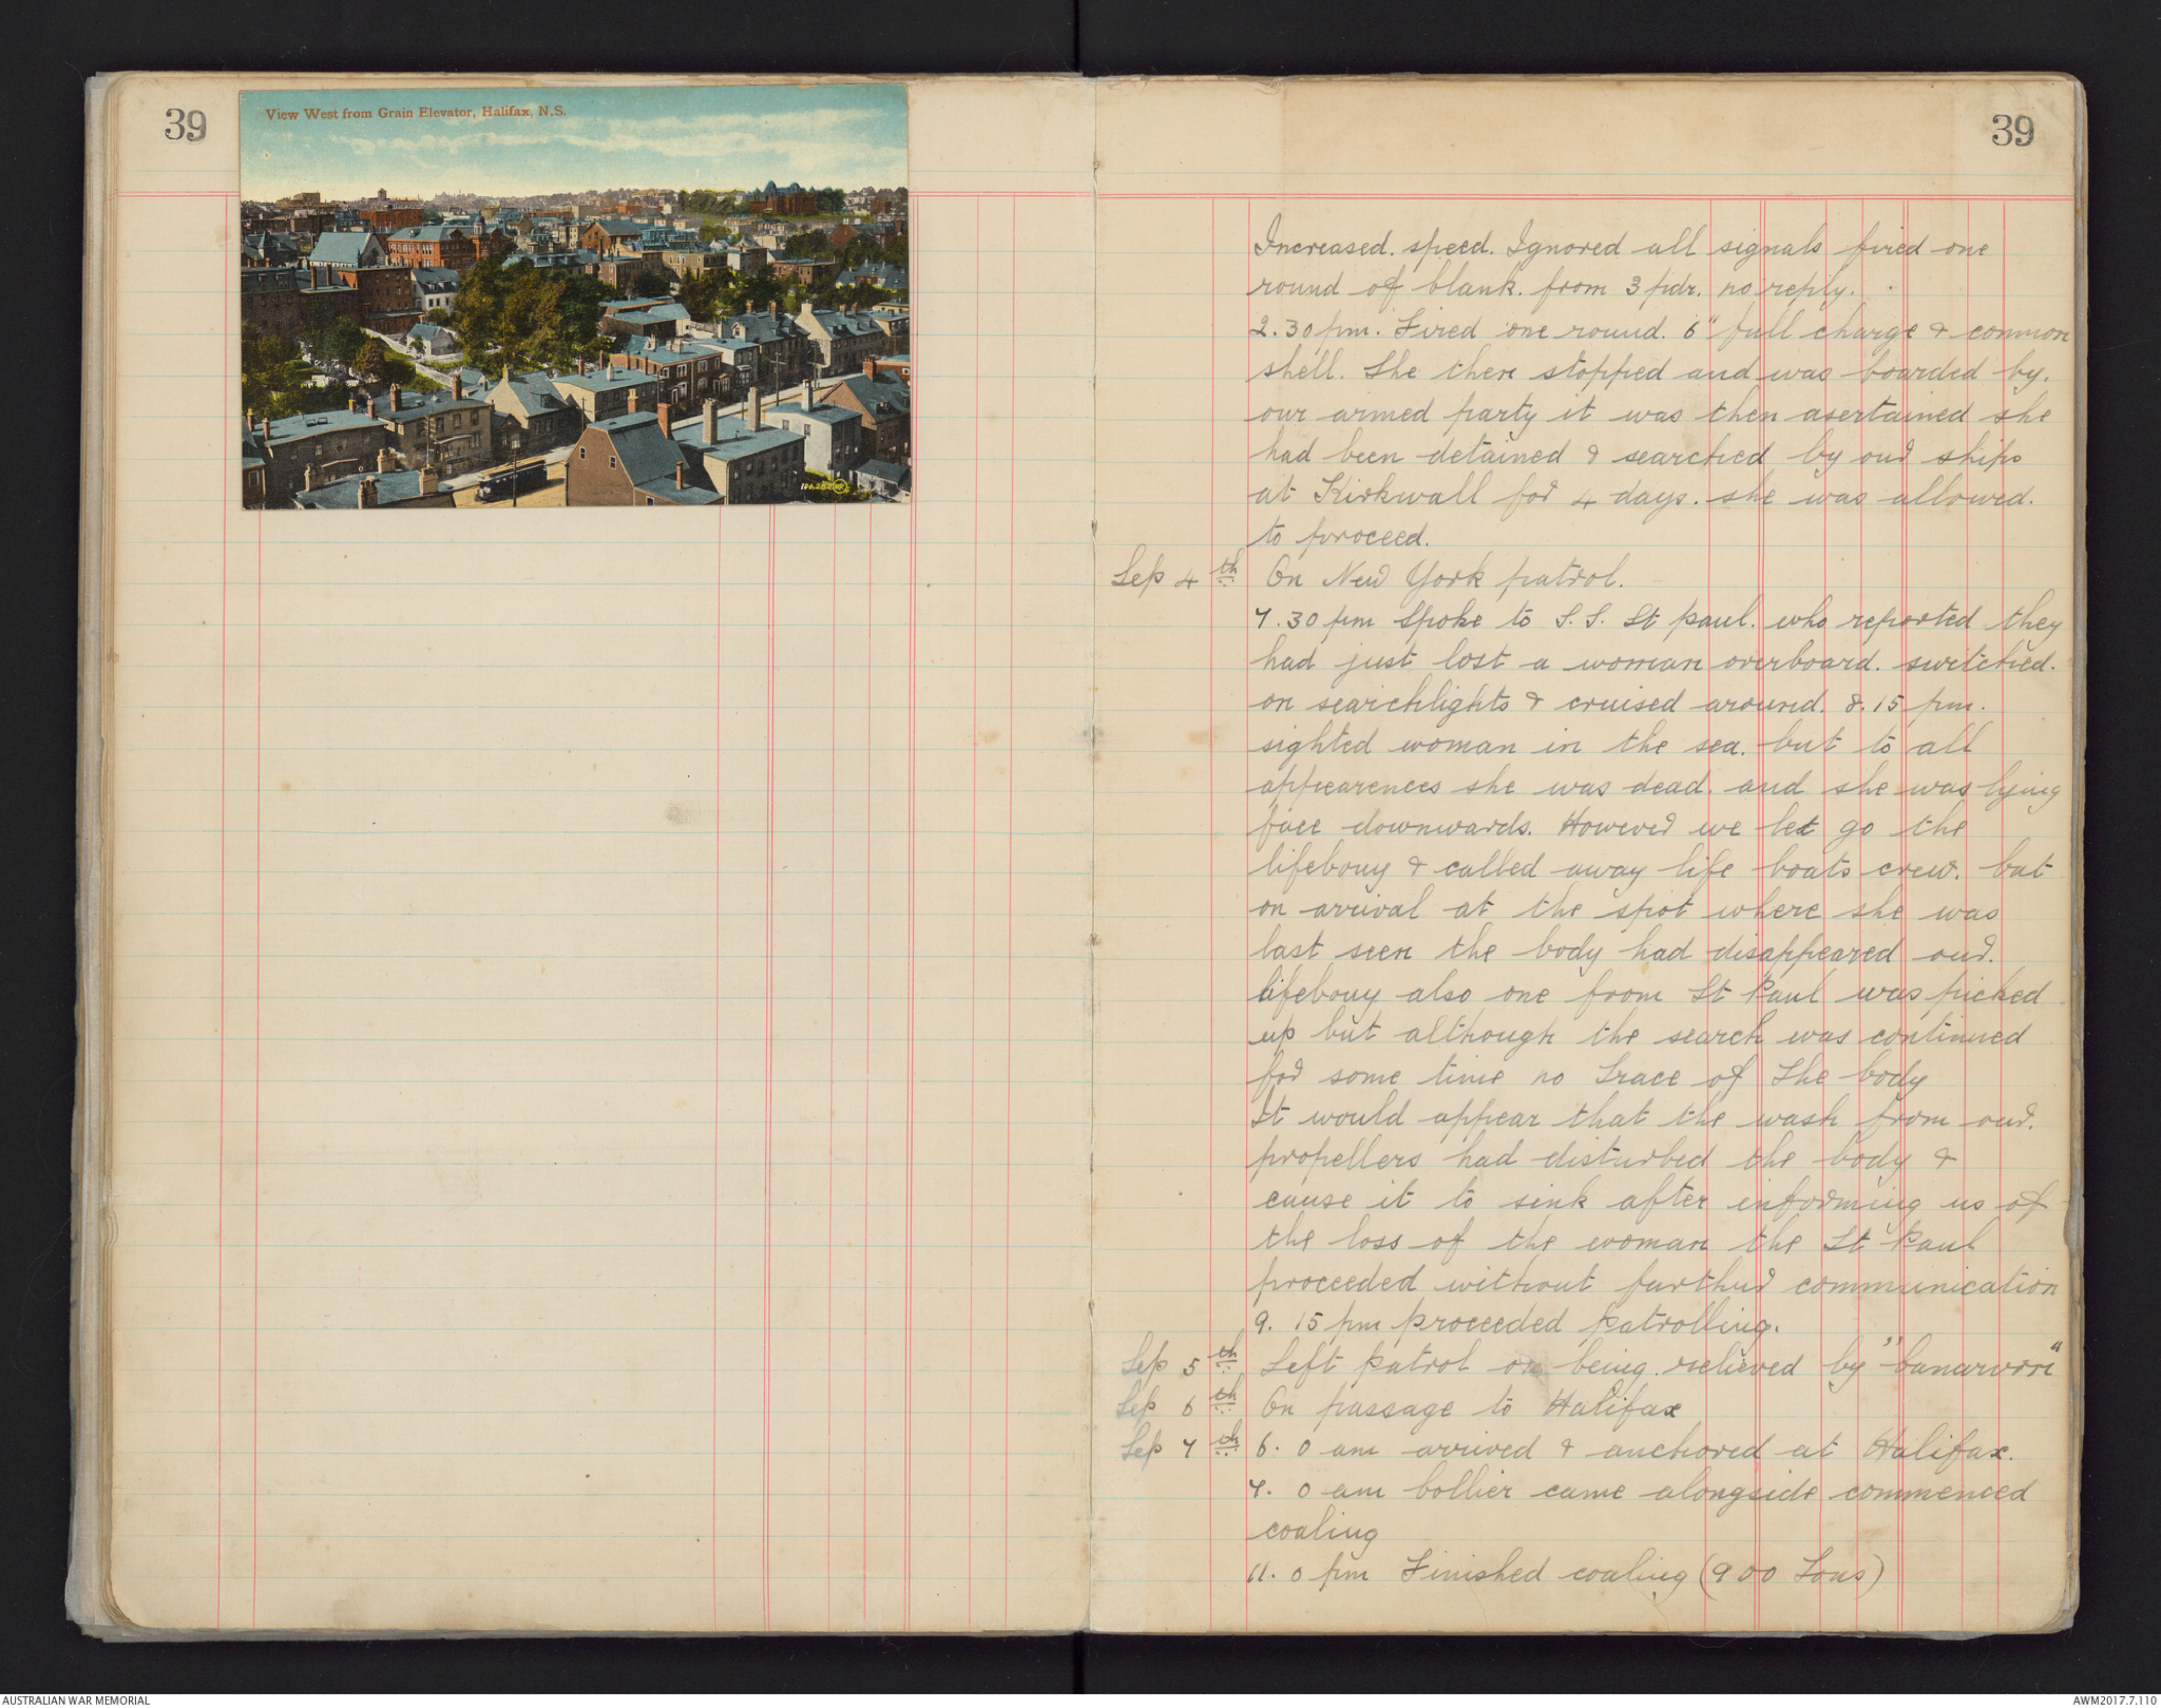 39
View West from Grain Elevator, Halifax, N.S.
39
Increased. speed. Ignored all signals fired one
round of blank. from 3 pdr. no reply.
2.30 pm. Fired one round. 6" full charge & common
shell. She then stopped and was boarded by.
our armed party it was then asertained she
had been detained & searched by our ships
at Kirkwall for 4 days. she was allowed.
to proceed.
Sep 4th On New York patrol.
7.30 pm Spoke to S.S. St Paul. who reported they
had just lost a woman overboard. switched.
on searchlights & cruised around. 8.15 pm.
sighted woman in the sea. but to all
appearences she was dead. and she was lying
face downwards. However we let go the
lifebouy & called away life boats crew. but
on arrival at the spot where she was
last seen the body had disappeared our.
lifebouy also one from St Paul was picked
up but although the search was continued
for some time no trace of the body
It would appear that the wash from our.
propellers had disturbed the body &
cause it to sink after informing us of
the loss of the woman the St Paul
proceeded without further communication
9. 15 pm proceeded patrolling.
Sep 5th Left patrol on being relieved by "Canarvon"
Sep 6th On passage to Halifax
Sep 7th 6. 0 am arrived & anchored at Halifax.
7. 0 am Collier came alongside commenced
coaling
11. 0 pm Finished coaling (900 Tons)
AUSTRALIAN WAR MEMORIAL
AWM2017.7.110